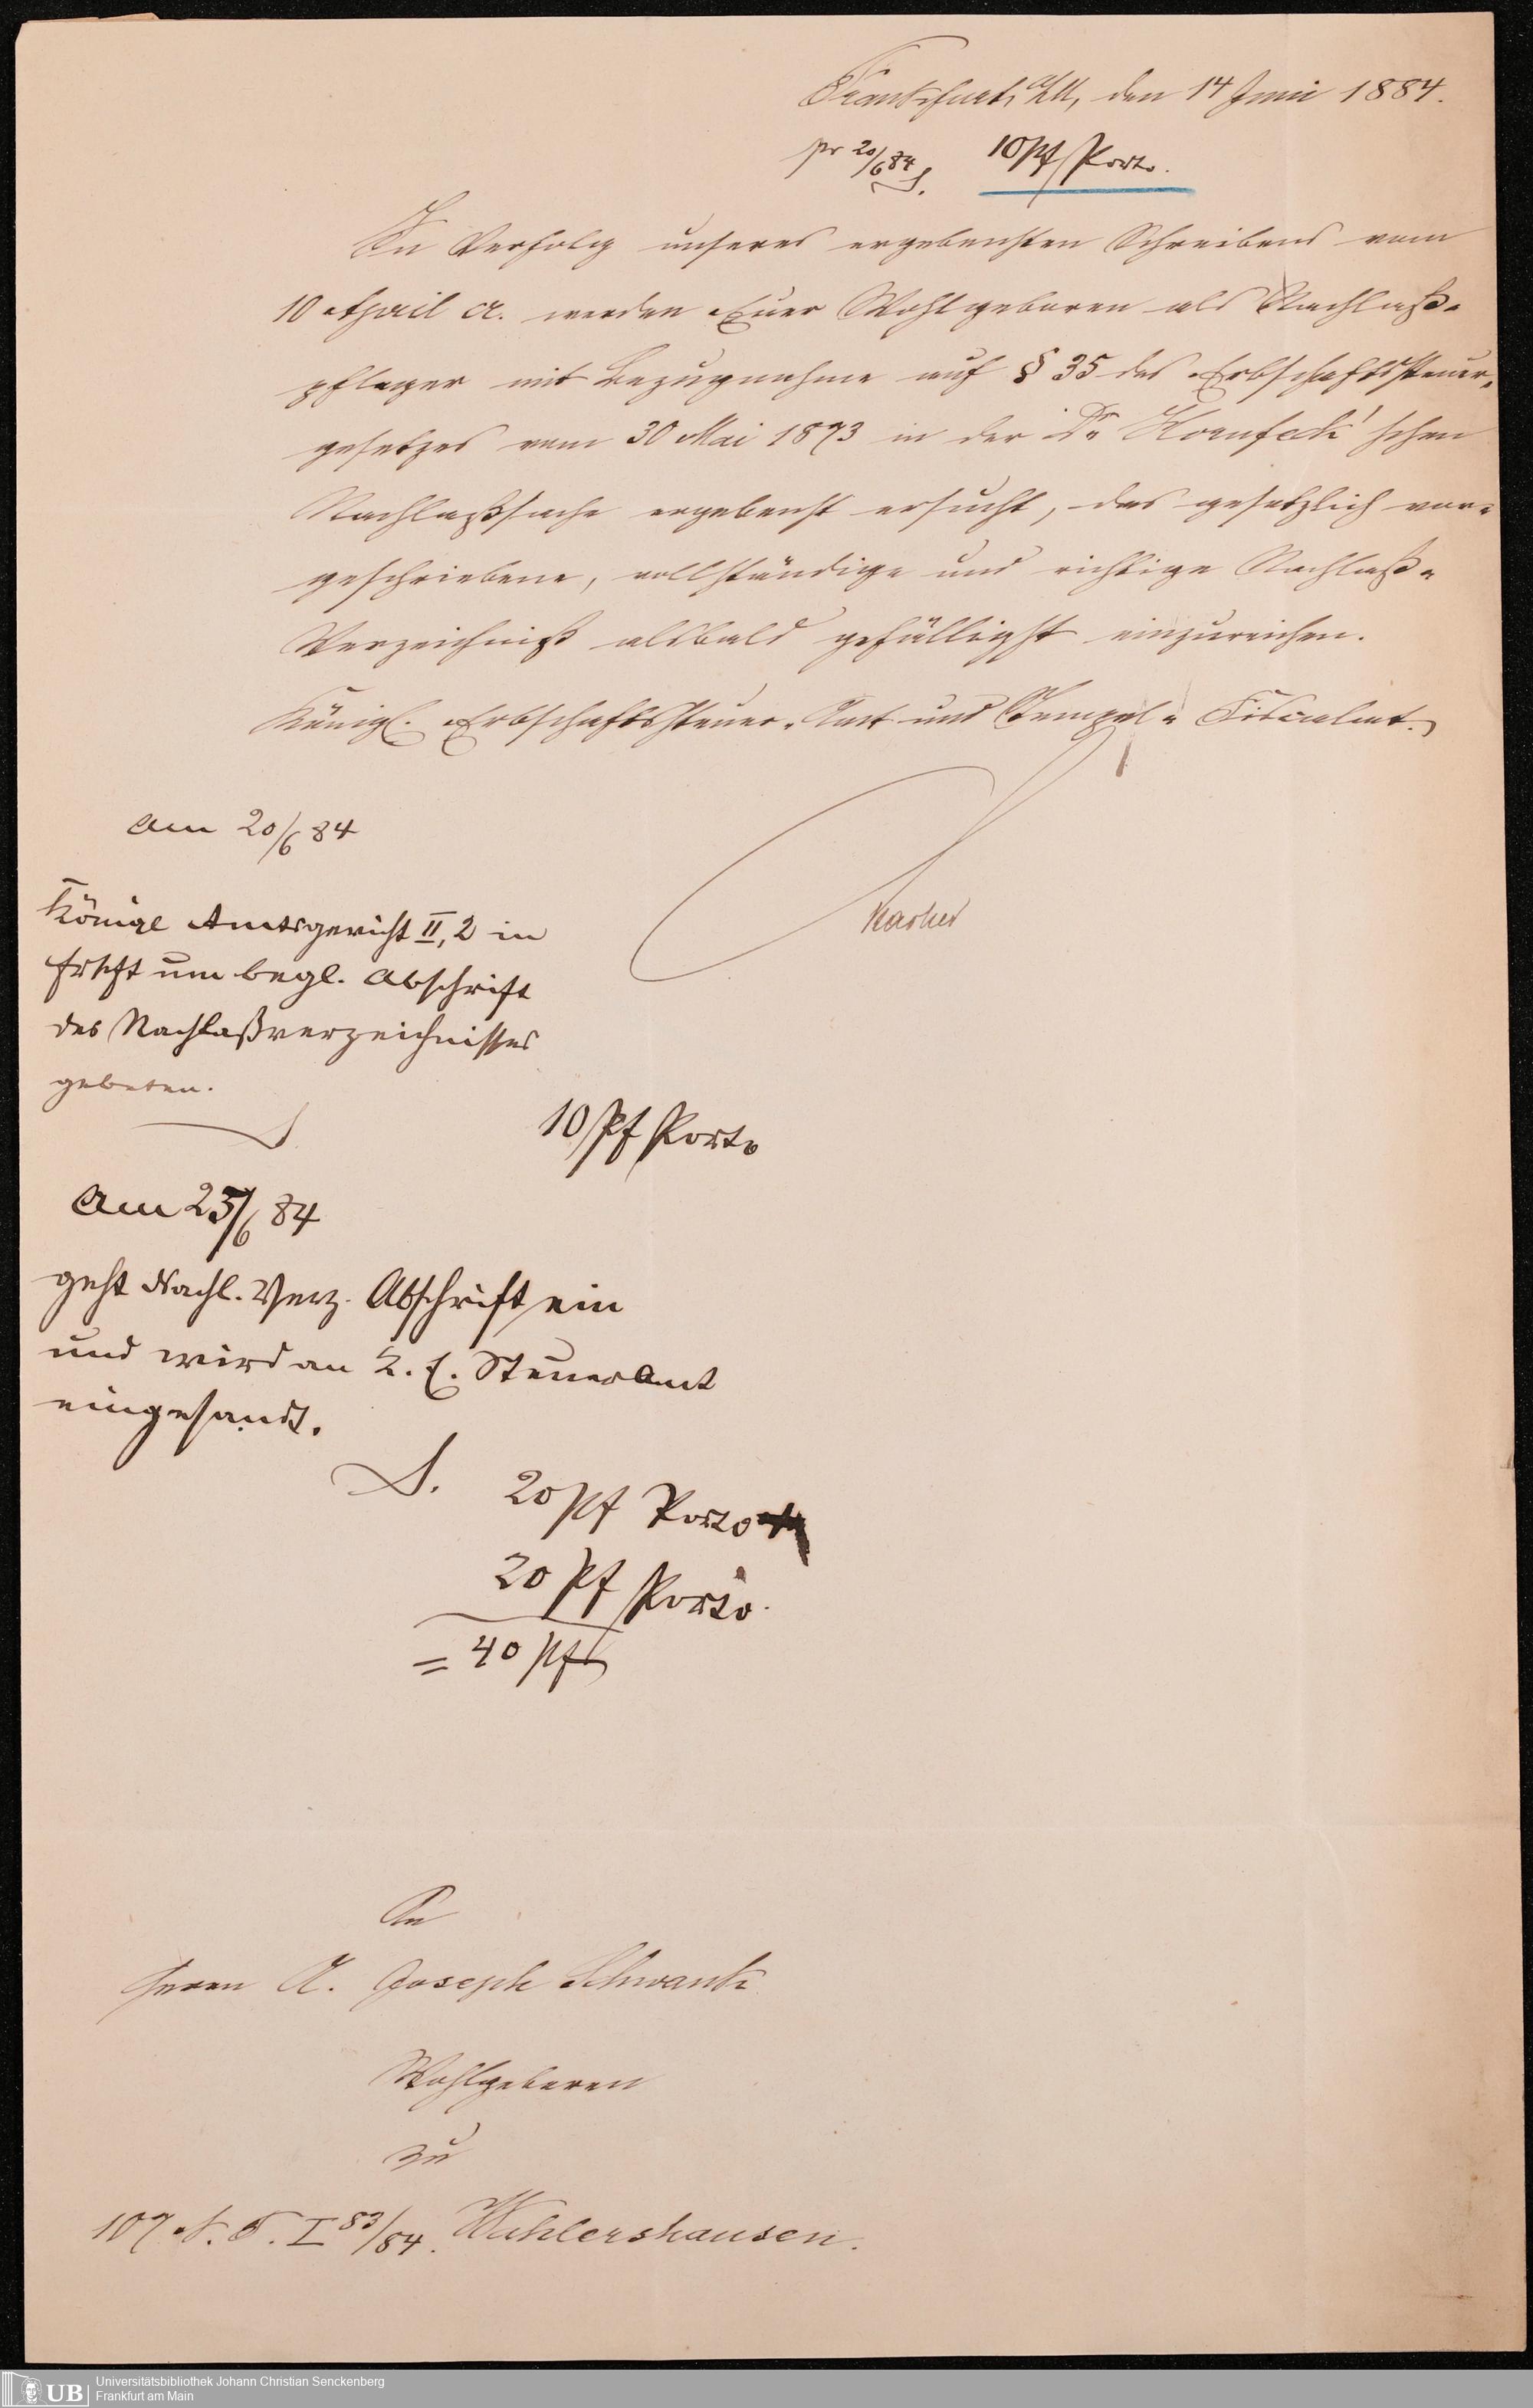 Frankfurt a/M, den 14 Juni 1884.
pr 20/6 84 S. 10 Pf Porto.
In Verfolg unseres ergebensten Schreibens vom
10 April cr. werden Euer Wohlgeboren als Nachlaß-
pfleger mit Bezugnahme auf § 35 des Erbschaftssteuer-
gesetzes vom 30 Mai 1873 in der Dr. Hornfeck'schen
Nachlaßsache ergebenst ersucht, das gesetzlich vor-
geschriebene, vollständige und richtige Nachlaß-
Verzeichniß alsbald gefälligst einzureichen.
Königl. Erbschaftssteuer-Amt und Stempel-Fiscalat.
am 20/6 84
Königl Amtsgericht II, 2 in
Frkft um begl. Abschrift
des Nachlaßverzeichnisses
gebeten.
S
10 Pf Porto
am 25/6 84
geht Nachl. Verz. Abschrift ein
und wird an K. E. Steueramt
eingesandt.
S. 20 Pf Porto
20 Pf Porto.
= 40 Pf
An
Herrn A. Joseph Schwank
Wohlgeboren
zu
107 N. T. I 83/84. Wahlershausen.
UB Universitätsbibliothek Johann Christian Senckenberg
Frankfurt am Main